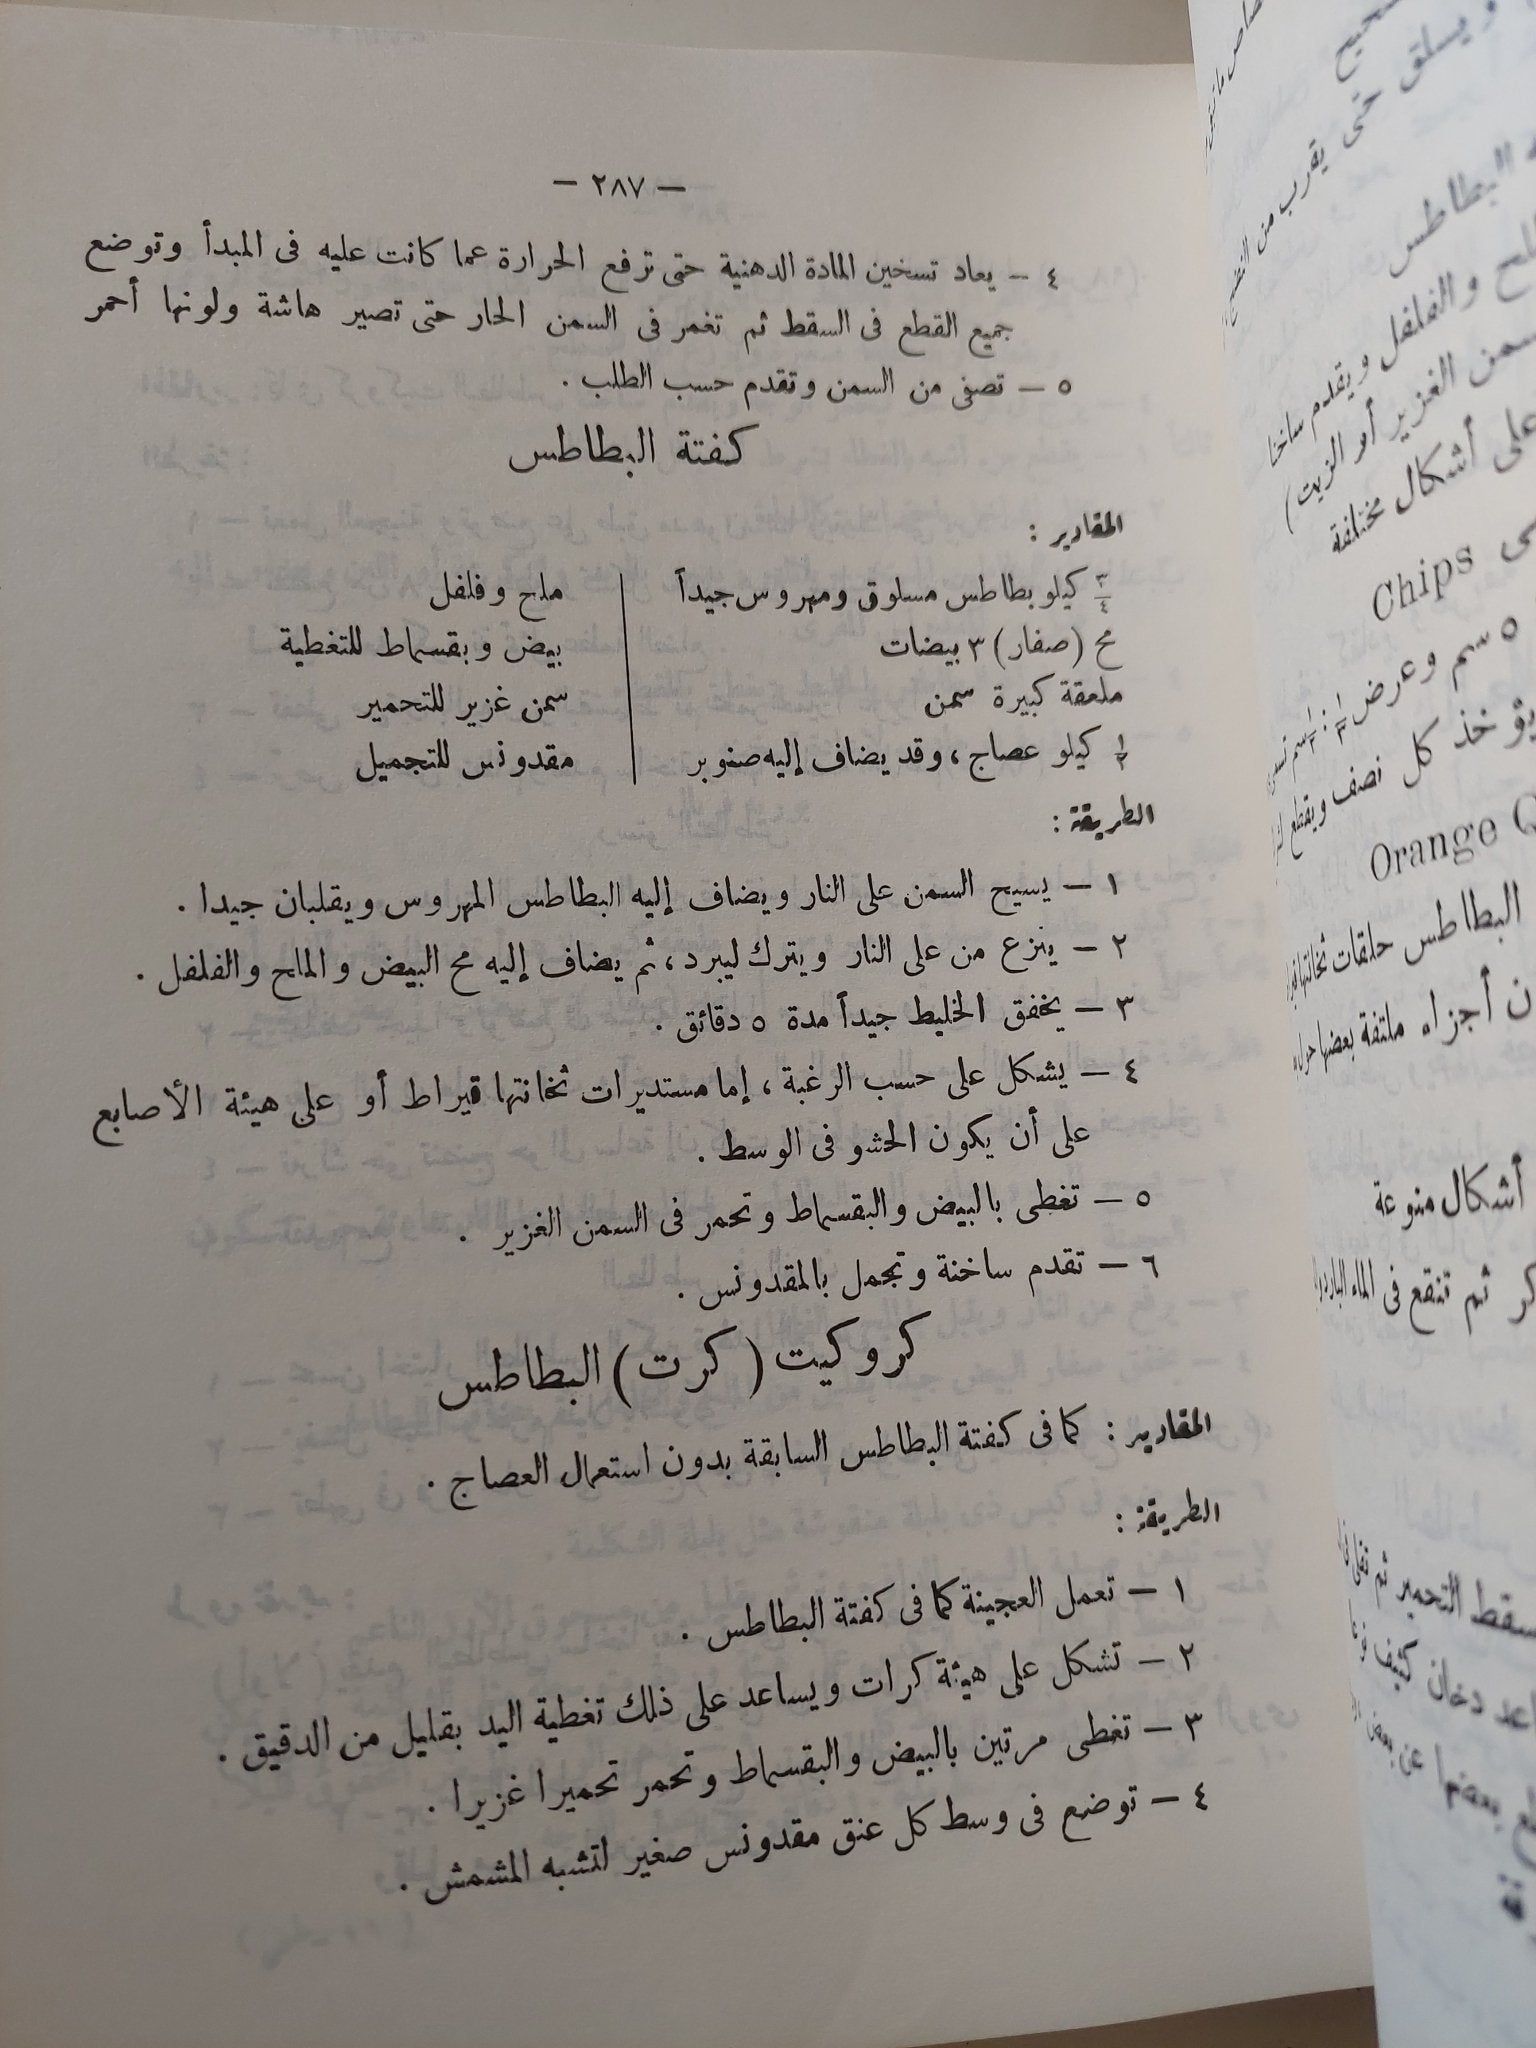 — ٢٨٧ —
٤ — يعاد تسخين المادة الدهنية حتى ترفع الحرارة عما كانت عليه فى المبدأ وتوضع
جميع القطع فى السقط ثم تغمر فى السمن الحار حتى تصير هاشة ولونها أحمر
٥ — تصفى من السمن وتقدم حسب الطلب .
كفتة البطاطس
المقادير :
٣/٤ كيلو بطاطس مسلوق ومهروس جيداً
مح (صفار) ٣ بيضات
ملعقة كبيرة سمن
١/٢ كيلو عصاج ، وقد يضاف إليه صنوبر
ملح وفلفل
بيض وبقسماط للتغطية
سمن غزير للتحمير
مقدونس للتجميل
الطريقة :
١ — يسيح السمن على النار ويضاف إليه البطاطس المهروس ويقلبان جيدا .
٢ — ينزع من على النار ويترك ليبرد ، ثم يضاف إليه مح البيض والملح والفلفل .
٣ — يخفق الخليط جيداً مدة ٥ دقائق .
٤ — يشكل على حسب الرغبة ، إما مستديرات ثخانتها قيراط أو على هيئة الأصابع
على أن يكون الحشو فى الوسط .
٥ — تغطى بالبيض والبقسماط وتحمر فى السمن الغزير .
٦ — تقدم ساخنة وتجمل بالمقدونس .
كروكيت ( كرت ) البطاطس
المقادير : كما فى كفتة البطاطس السابقة بدون استعمال العصاج .
الطريقة :
١ — تعمل العجينة كما فى كفتة البطاطس .
٢ — تشكل على هيئة كرات ويساعد على ذلك تغطية اليد بقليل من الدقيق .
٣ — تغطى مرتين بالبيض والبقسماط وتحمر تحميرا غزيرا .
٤ — توضع فى وسط كل عنق مقدونس صغير لتشبه المشمش .
ويسلق حتى يقرب من النضج
البطاطس
والفلفل ويقدم ساخنا
سمن الغزير أو الزيت )
على أشكال مختلفة
Chips
٥ سم وعرض
يؤخذ كل نصف ويقطع
Orange
البطاطس حلقات ثخانتها
أجزاء ملتفة بعضها حول
أشكال منوعة
ثم تنقع فى الماء البارد
التحمير ثم
دخان كثيف
بعضها عن بعض